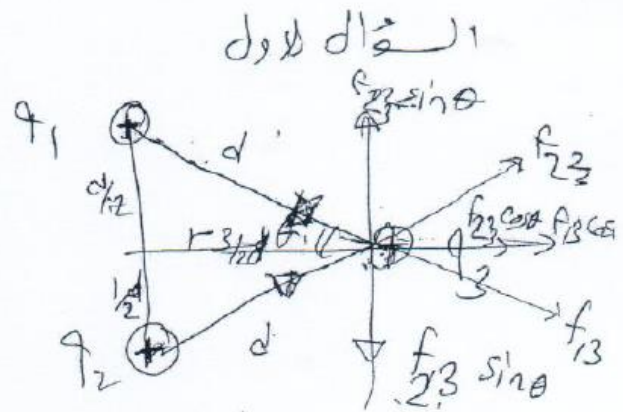 السؤال الاول
F₂₃ sinθ
q₁
d
F₂₃
d/2
F₂₃ cosθ F₁₃ cosθ
q₃
1/2 d
F₁₃
q₂
d
F₂₃ sinθ